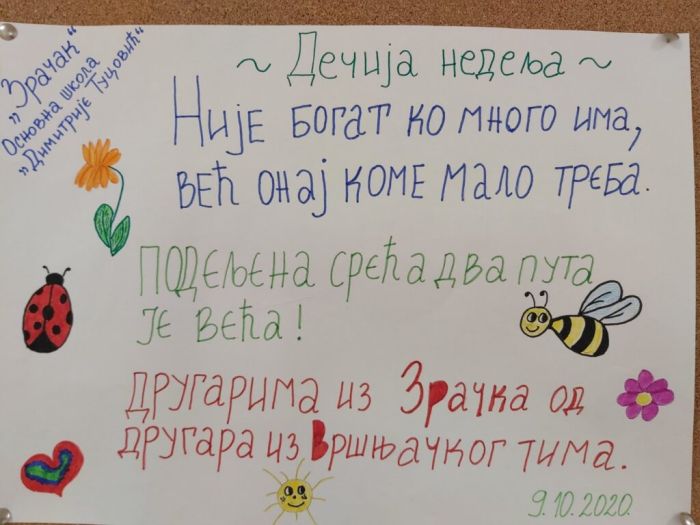 „Зрачак“
Основна школа
„Димитрије Туцовић“
~ Дечија недеља ~
Није богат ко много има,
већ онај коме мало треба.
Подељена срећа два пута
је већа!
Другарима из Зрачка од
другара из Вршњачког тима.
9.10.2020.